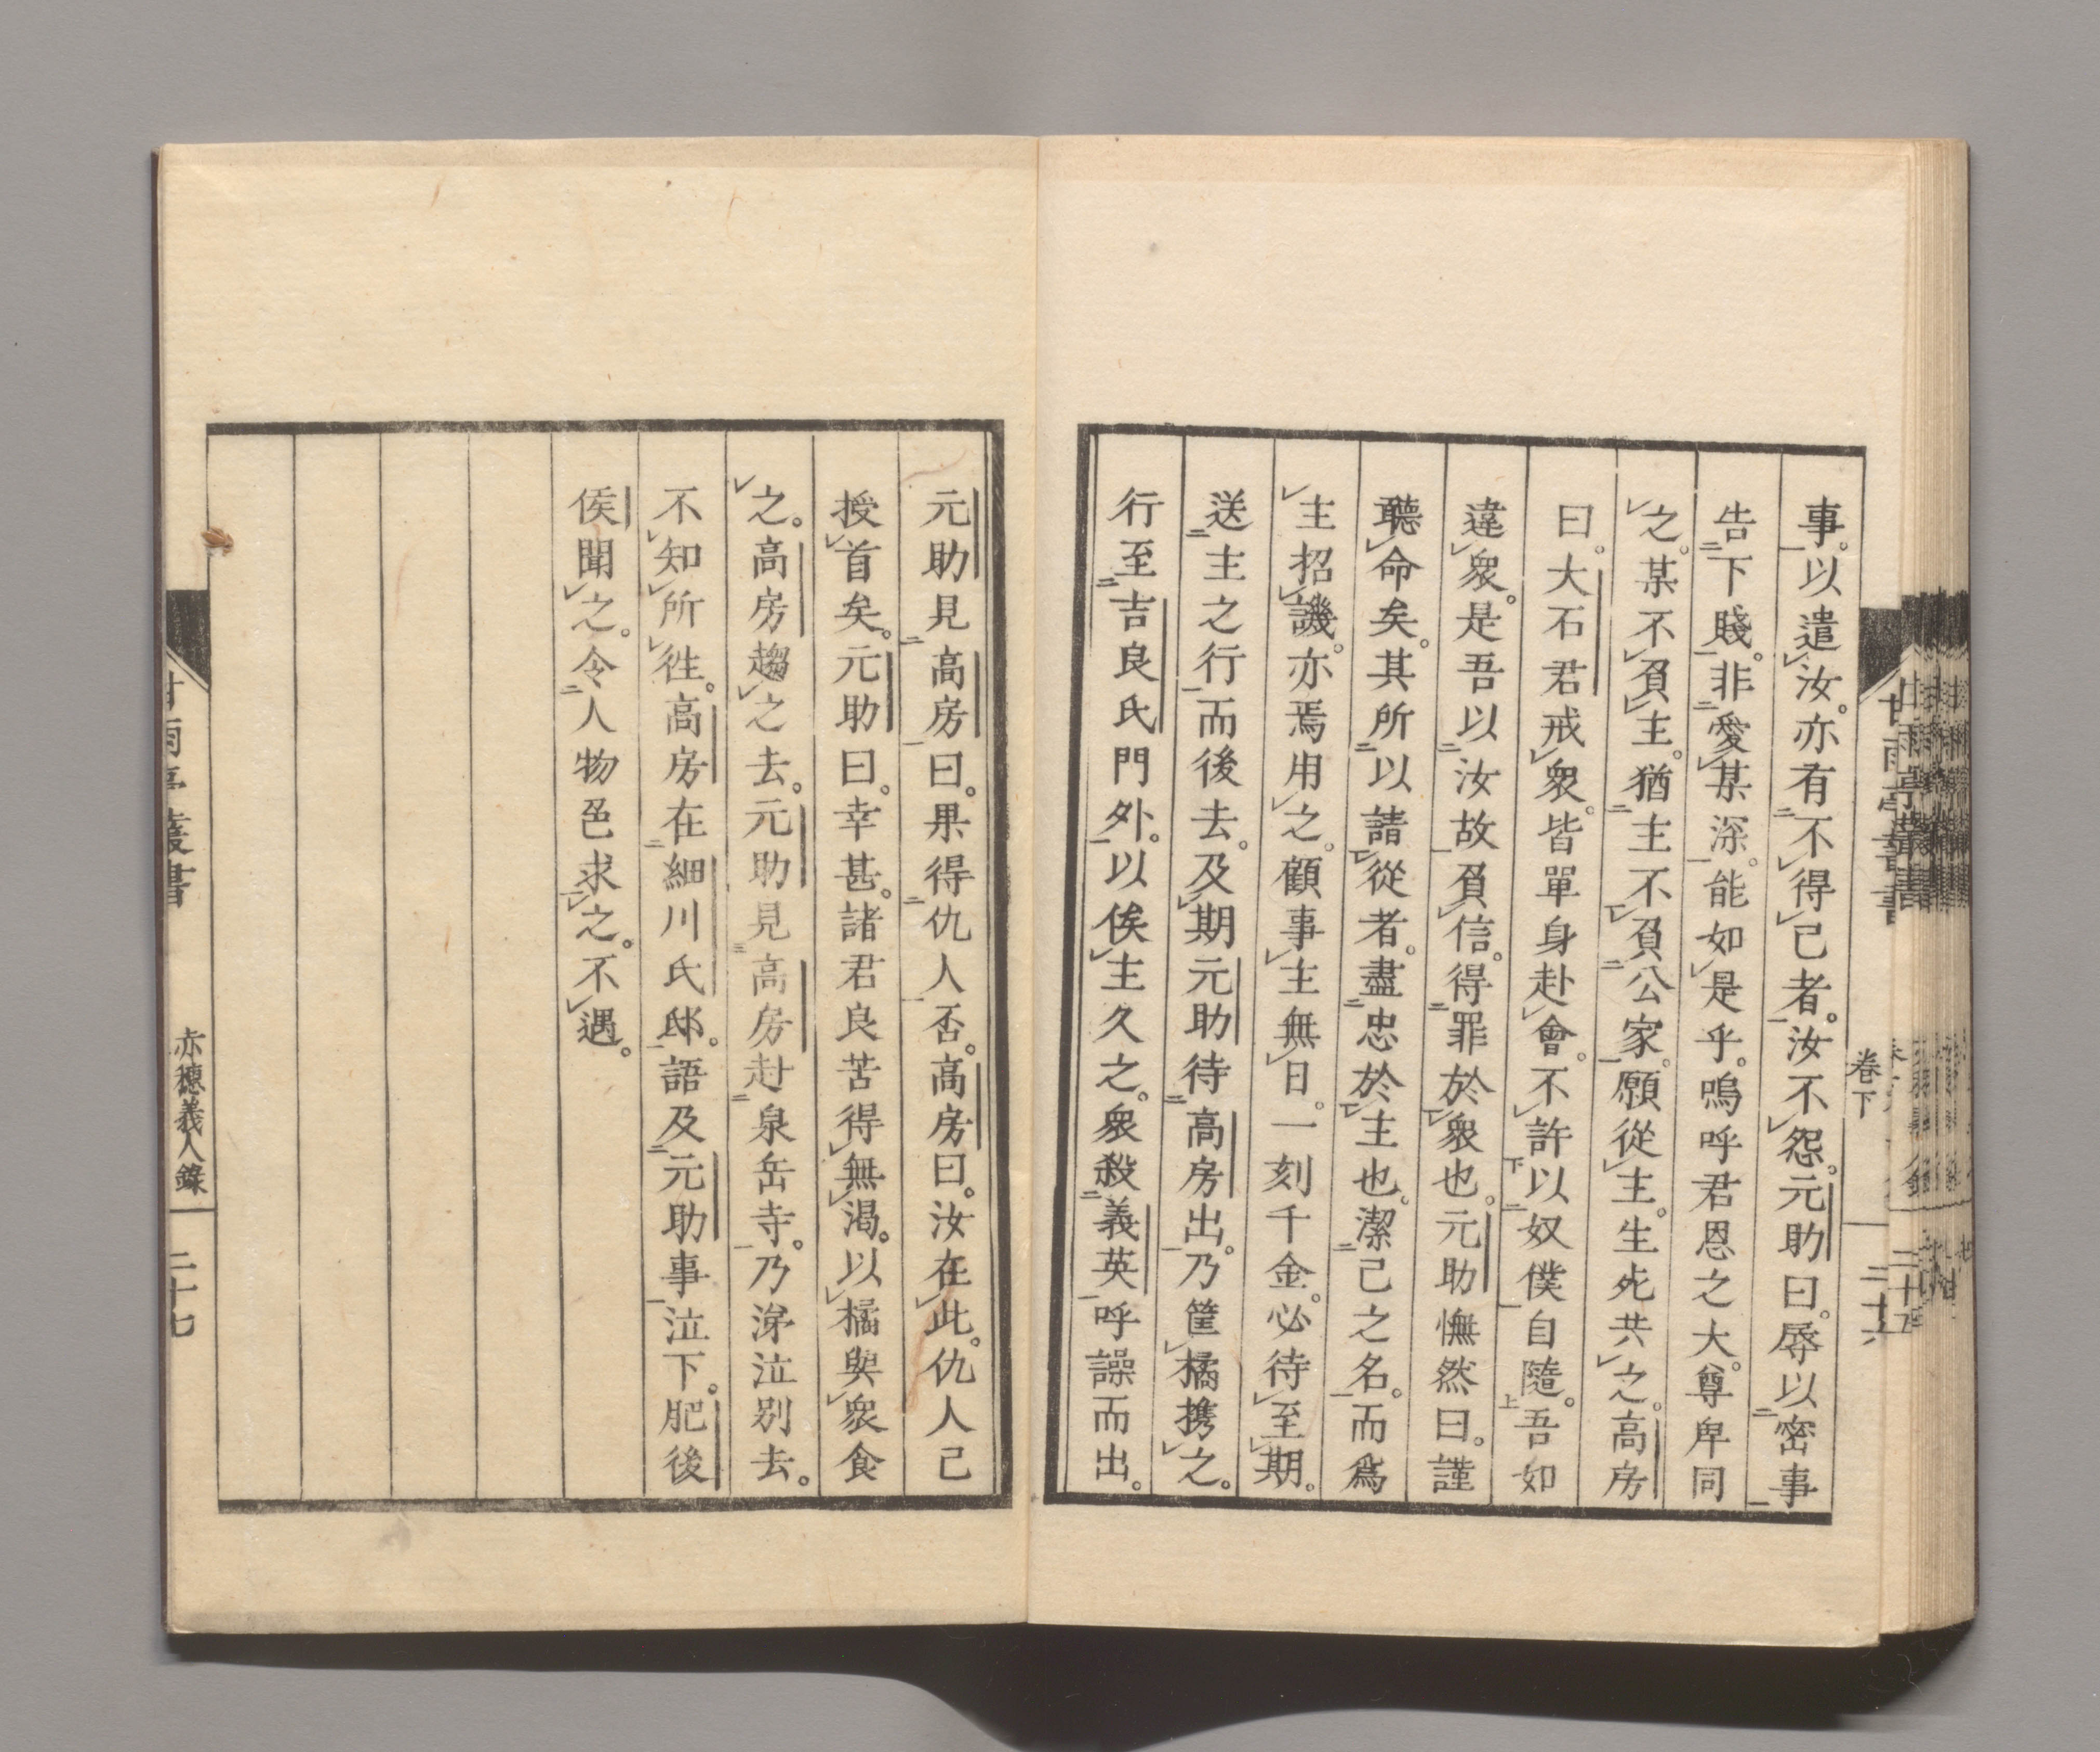 事。以遣汝。亦有不得已者。汝不怨。元助曰。辱以密事
告下賤。非愛某深。能如是乎。嗚呼君恩之大。尊卑同
之。某不負主。猶主不負公家。願從主。生死共之。高房
曰。大石君戒衆。皆單身赴會。不許以奴僕自隨。吾如
違衆。是吾以汝故負信。得罪於衆也。元助憮然曰。謹
聽命矣。其所以請從者。盡忠於主也。潔己之名。而爲
主招譏。亦焉用之。顧事主無日。一刻千金。必待至期。
送主之行而後去。及期元助待高房出。乃筐橘携之。
行至吉良氏門外。以俟主久之。衆殺義英呼譟而出。
卷下
二十六
元助見高房曰。果得仇人否。高房曰。汝在此。仇人已
授首矣。元助曰。幸甚。諸君良苦得無渴。以橘與衆食
之。高房趨之去。元助見高房赴泉岳寺。乃涕泣別去。
不知所徃。高房在細川氏邸。語及元助事泣下。肥後
侯聞之。令人物色求之。不遇。
甘雨亭叢書
赤穗義人錄
二十七